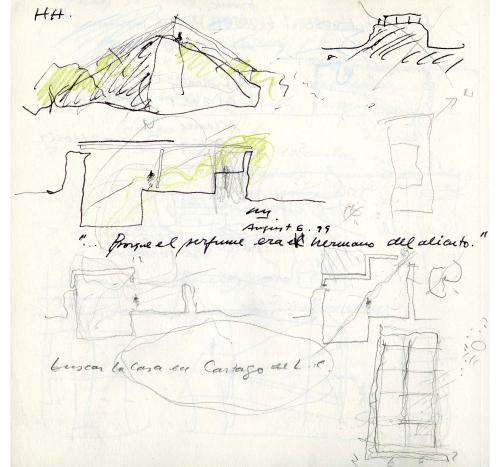 HH.
August 6. 99
"... Porque el perfume era el hermano del aliento."
buscar la casa en Cartago de L.